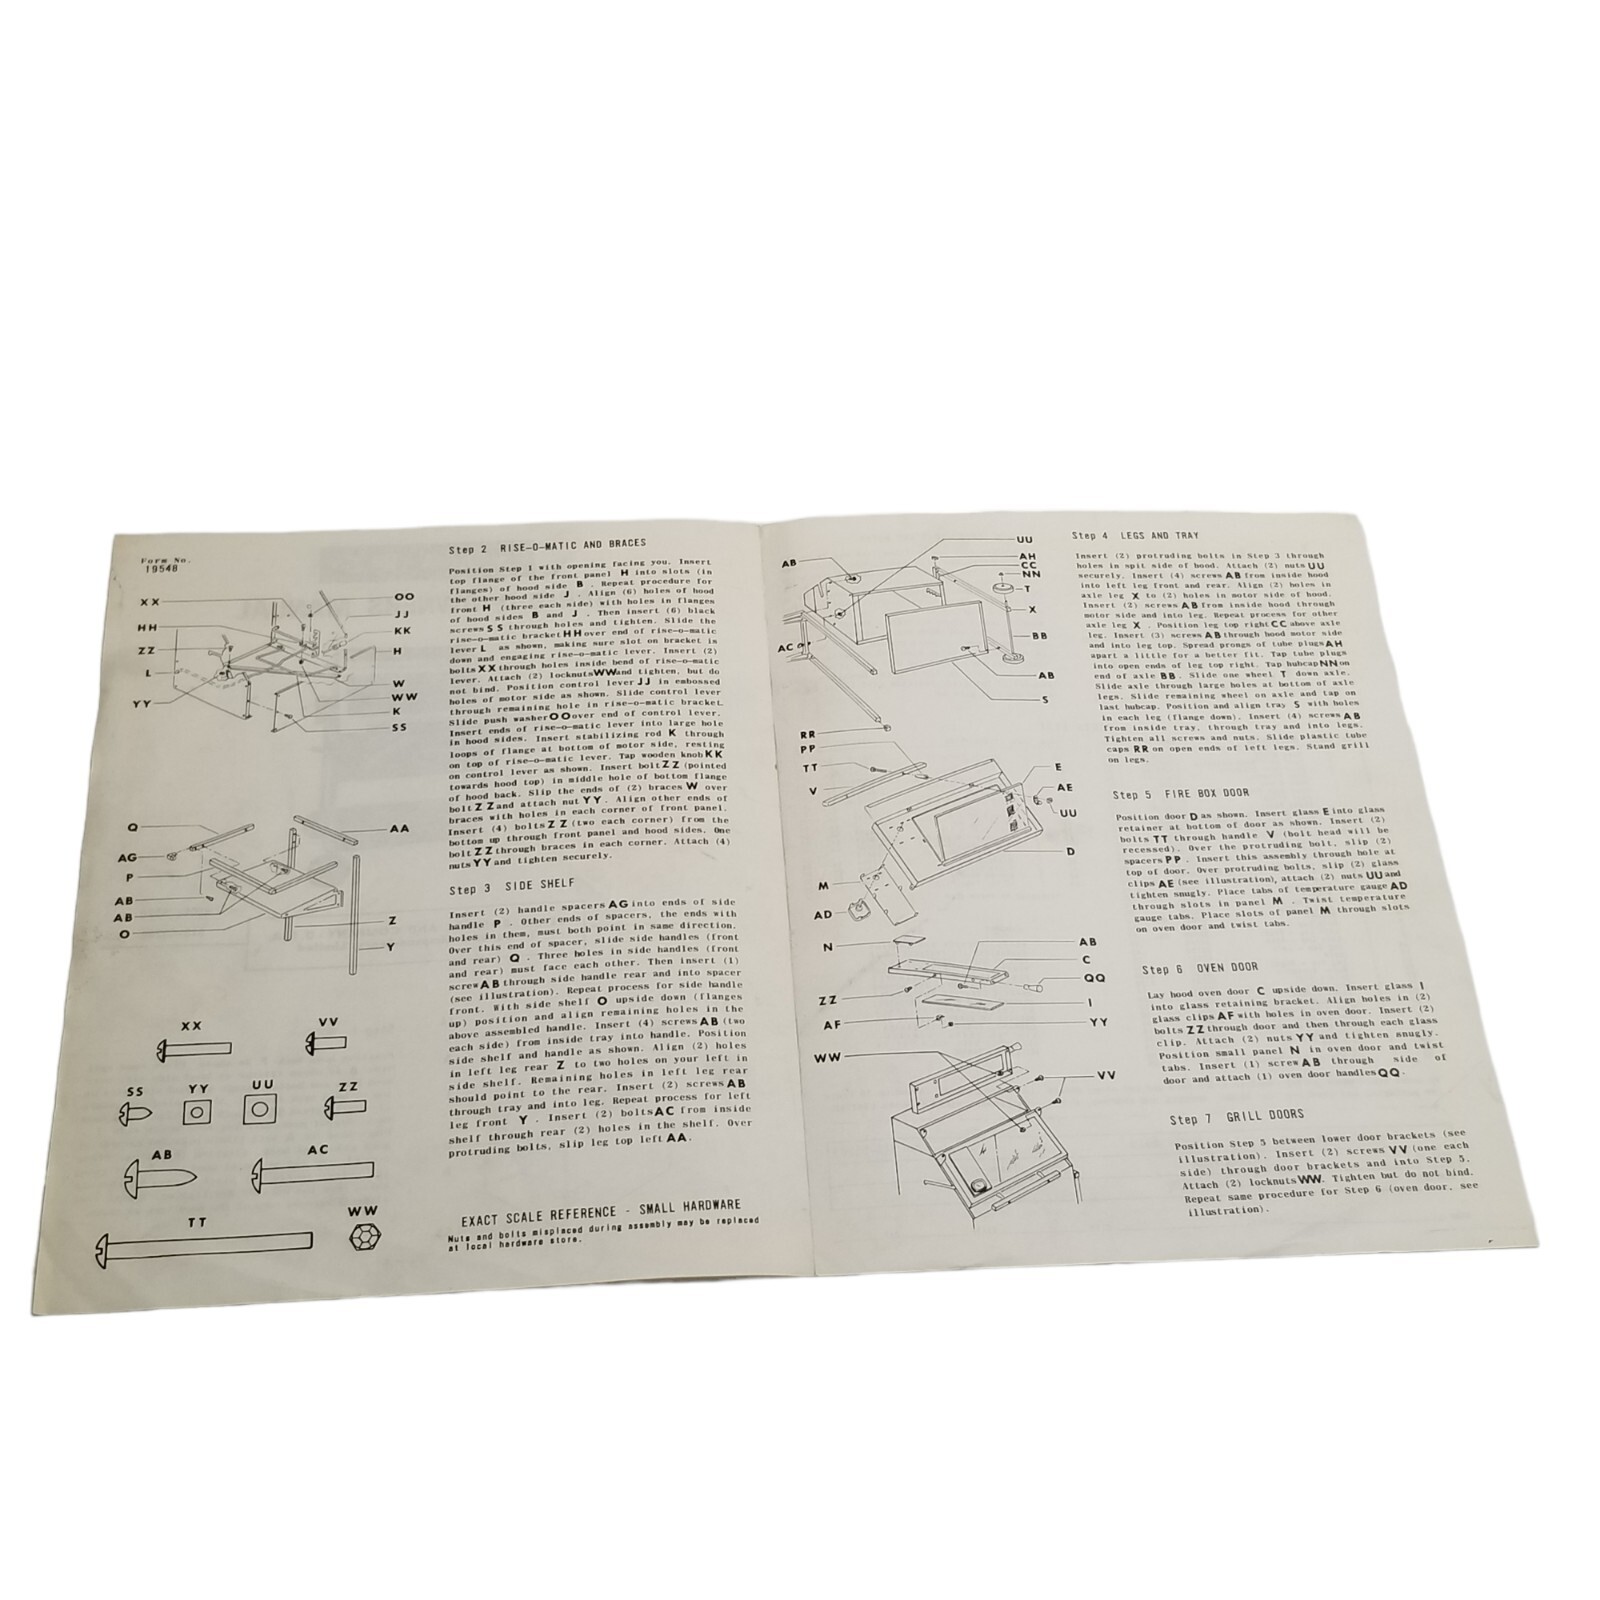 Form No.
19548
XX
HH
ZZ
L
YY
OO
JJ
KK
H
W
WW
K
SS
Q
AG
P
AB
AB
O
AA
Z
Y
XX
VV
SS
YY
UU
ZZ
AB
AC
TT
WW
Step 2 RISE-O-MATIC AND BRACES
Position Step 1 with opening facing you. Insert
top flange of the front panel H into slots (in
flanges) of hood side B . Repeat procedure for
the other hood side J . Align (6) holes of hood
front H (three each side) with holes in flanges
of hood sides B and J . Then insert (6) black
screws SS through holes and tighten. Slide the
rise-o-matic bracket HH over end of rise-o-matic
lever L as shown, making sure slot on bracket is
down and engaging rise-o-matic lever. Insert (2)
bolts XX through holes inside bend of rise-o-matic
lever. Attach (2) locknuts WW and tighten, but do
not bind. Position control lever JJ in embossed
holes of motor side as shown. Slide control lever
through remaining hole in rise-o-matic bracket.
Slide push washer OO over end of control lever.
Insert ends of rise-o-matic lever into large hole
in hood sides. Insert stabilizing rod K through
loops of flange at bottom of motor side, resting
on top of rise-o-matic lever. Tap wooden knob KK
on control lever as shown. Insert bolt ZZ (pointed
towards hood top) in middle hole of bottom flange
of hood back. Slip the ends of (2) braces W over
bolt ZZ and attach nut YY . Align other ends of
braces with holes in each corner of front panel.
Insert (4) bolts ZZ (two each corner) from the
bottom up through front panel and hood sides. One
bolt ZZ through braces in each corner. Attach (4)
nuts YY and tighten securely.
Step 3 SIDE SHELF
Insert (2) handle spacers AG into ends of side
handle P . Other ends of spacers, the ends with
holes in them, must both point in same direction.
Over this end of spacer, slide side handles (front
and rear) Q . Three holes in side handles (front
and rear) must face each other. Then insert (1)
screw AB through side handle rear and into spacer
(see illustration). Repeat process for side handle
front. With side shelf O upside down (flanges
up) position and align remaining holes in the
above assembled handle. Insert (4) screws AB (two
each side) from inside tray into handle. Position
side shelf and handle as shown. Align (2) holes
in left leg rear Z to two holes on your left in
side shelf. Remaining holes in left leg rear
should point to the rear. Insert (2) screws AB
through tray and into leg. Repeat process for left
leg front Y . Insert (2) bolts AC from inside
shelf through rear (2) holes in the shelf. Over
protruding bolts, slip leg top left AA.
EXACT SCALE REFERENCE - SMALL HARDWARE
Nuts and bolts misplaced during assembly may be replaced
at local hardware store.
AB
AC
UU
AH
CC
NN
T
X
BB
AB
S
RR
PP
TT
V
E
AE
UU
D
M
AD
N
AB
C
QQ
ZZ
I
AF
YY
WW
VV
Step 4 LEGS AND TRAY
Insert (2) protruding bolts in Step 3 through
holes in spit side of hood. Attach (2) nuts UU
securely. Insert (4) screws AB from inside hood
into left leg front and rear. Align (2) holes in
axle leg X to (2) holes in motor side of hood.
Insert (2) screws AB from inside hood through
motor side and into leg. Repeat process for other
axle leg X . Position leg top right CC above axle
leg. Insert (3) screws AB through hood motor side
and into leg top. Spread prongs of tube plugs AH
apart a little for a better fit. Tap tube plugs
into open ends of leg top right. Tap hubcap NN on
end of axle BB . Slide one wheel T down axle.
Slide axle through large holes at bottom of axle
legs. Slide remaining wheel on axle and tap on
last hubcap. Position and align tray S with holes
in each leg (flange down). Insert (4) screws AB
from inside tray, through tray and into legs.
Tighten all screws and nuts. Slide plastic tube
caps RR on open ends of left legs. Stand grill
on legs.
Step 5 FIRE BOX DOOR
Position door D as shown. Insert glass E into glass
retainer at bottom of door as shown. Insert (2)
bolts TT through handle V (bolt head will be
recessed). Over the protruding bolt, slip (2)
spacers PP . Insert this assembly through hole at
top of door. Over protruding bolts, slip (2) glass
clips AE (see illustration), attach (2) nuts UU and
tighten snugly. Place tabs of temperature gauge AD
through slots in panel M . Twist temperature
gauge tabs. Place slots of panel M through slots
on oven door and twist tabs.
Step 6 OVEN DOOR
Lay hood oven door C upside down. Insert glass I
into glass retaining bracket. Align holes in (2)
glass clips AF with holes in oven door. Insert (2)
bolts ZZ through door and then through each glass
clip. Attach (2) nuts YY and tighten snugly.
Position small panel N in oven door and twist
tabs. Insert (1) screw AB through side of
door and attach (1) oven door handles QQ.
Step 7 GRILL DOORS
Position Step 5 between lower door brackets (see
illustration). Insert (2) screws VV (one each
side) through door brackets and into Step 5.
Attach (2) locknuts WW. Tighten but do not bind.
Repeat same procedure for Step 6 (oven door, see
illustration).